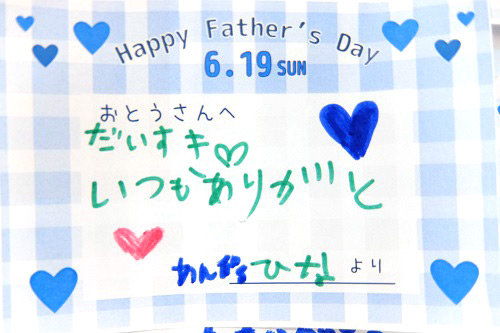 Happy Father's Day
6.19 SUN
おとうさんへ
だいすき♡
いつもありがとう
ひな より